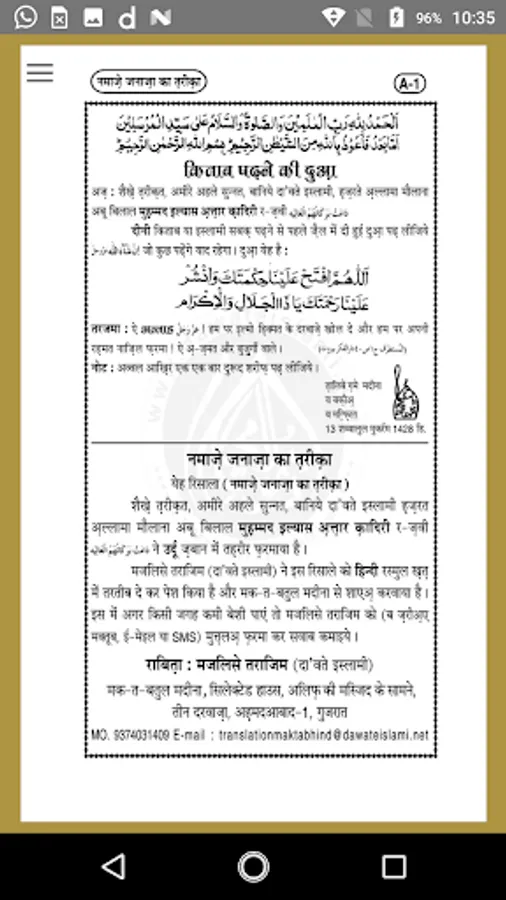 96% 10:35
नमाज़े जनाज़ा का त़रीक़ा
A-1
اَلْحَمْدُ لِلّٰهِ رَبِّ الْعٰلَمِيْنَ وَالصَّلٰوةُ وَالسَّلَامُ عَلٰى سَيِّدِ الْمُرْسَلِيْنَ
اَمَّا بَعْدُ فَاَعُوْذُ بِاللّٰهِ مِنَ الشَّيْطٰنِ الرَّجِيْمِ بِسْمِ اللّٰهِ الرَّحْمٰنِ الرَّحِيْمِ
किताब पढ़ने की दुआ़
अज़ : शैख़े त़रीक़त, अमीरे अहले सुन्नत, बानिये दा'वते इस्लामी, ह़ज़रते अ़ल्लामा मौलाना
अबू बिलाल मुह़म्मद इल्यास अ़त्त़ार क़ादिरी र-ज़वी
दीनी किताब या इस्लामी सबक़ पढ़ने से पहले ज़ैल में दी हुई दुआ़ पढ़ लीजिये
जो कुछ पढ़ेंगे याद रहेगा। दुआ़ येह है :
اَللّٰهُمَّ افْتَحْ عَلَيْنَا حِكْمَتَكَ وَانْشُرْ
عَلَيْنَا رَحْمَتَكَ يَا ذَا الْجَلَالِ وَالْاِكْرَام
तरजमा : ऐ عَزَّوَجَلَّ ! हम पर इ़ल्मो ह़िक्मत के दरवाज़े खोल दे और हम पर अपनी
रह़मत नाज़िल फ़रमा ! ऐ अ़-ज़मत और बुज़ुर्गी वाले।
नोट : अव्वल आख़िर एक एक बार दुरूद शरीफ़ पढ़ लीजिये।
त़ालिबे ग़मे मदीना
व बक़ीअ़
व मग़्फ़िरत
13 शव्वालुल मुकर्रम 1428 हि.
नमाज़े जनाज़ा का त़रीक़ा
येह रिसाला ( नमाज़े जनाज़ा का त़रीक़ा )
शैख़े त़रीक़त, अमीरे अहले सुन्नत, बानिये दा'वते इस्लामी ह़ज़रत
अ़ल्लामा मौलाना अबू बिलाल मुह़म्मद इल्यास अ़त्त़ार क़ादिरी र-ज़वी
ने उर्दू ज़बान में तह़रीर फ़रमाया है।
मजलिसे तराजिम (दा'वते इस्लामी) ने इस रिसाले को हिन्दी रस्मुल ख़त़
में तरतीब दे कर पेश किया है और मक-त-बतुल मदीना से शाएअ़ करवाया है।
इस में अगर किसी जगह कमी बेशी पाएं तो मजलिसे तराजिम को (ब ज़रीअ़ए
मक्तूब, ई-मेइल या SMS) मुत़्त़लअ़ फ़रमा कर सवाब कमाइये।
राबित़ा : मजलिसे तराजिम (दा'वते इस्लामी)
मक-त-बतुल मदीना, सिलेक्टेड हाउस, अलिफ़ की मस्जिद के सामने,
तीन दरवाज़ा, अह़मदआबाद-1, गुजरात
MO. 9374031409 E-mail : translationmaktabhind@dawateislami.net